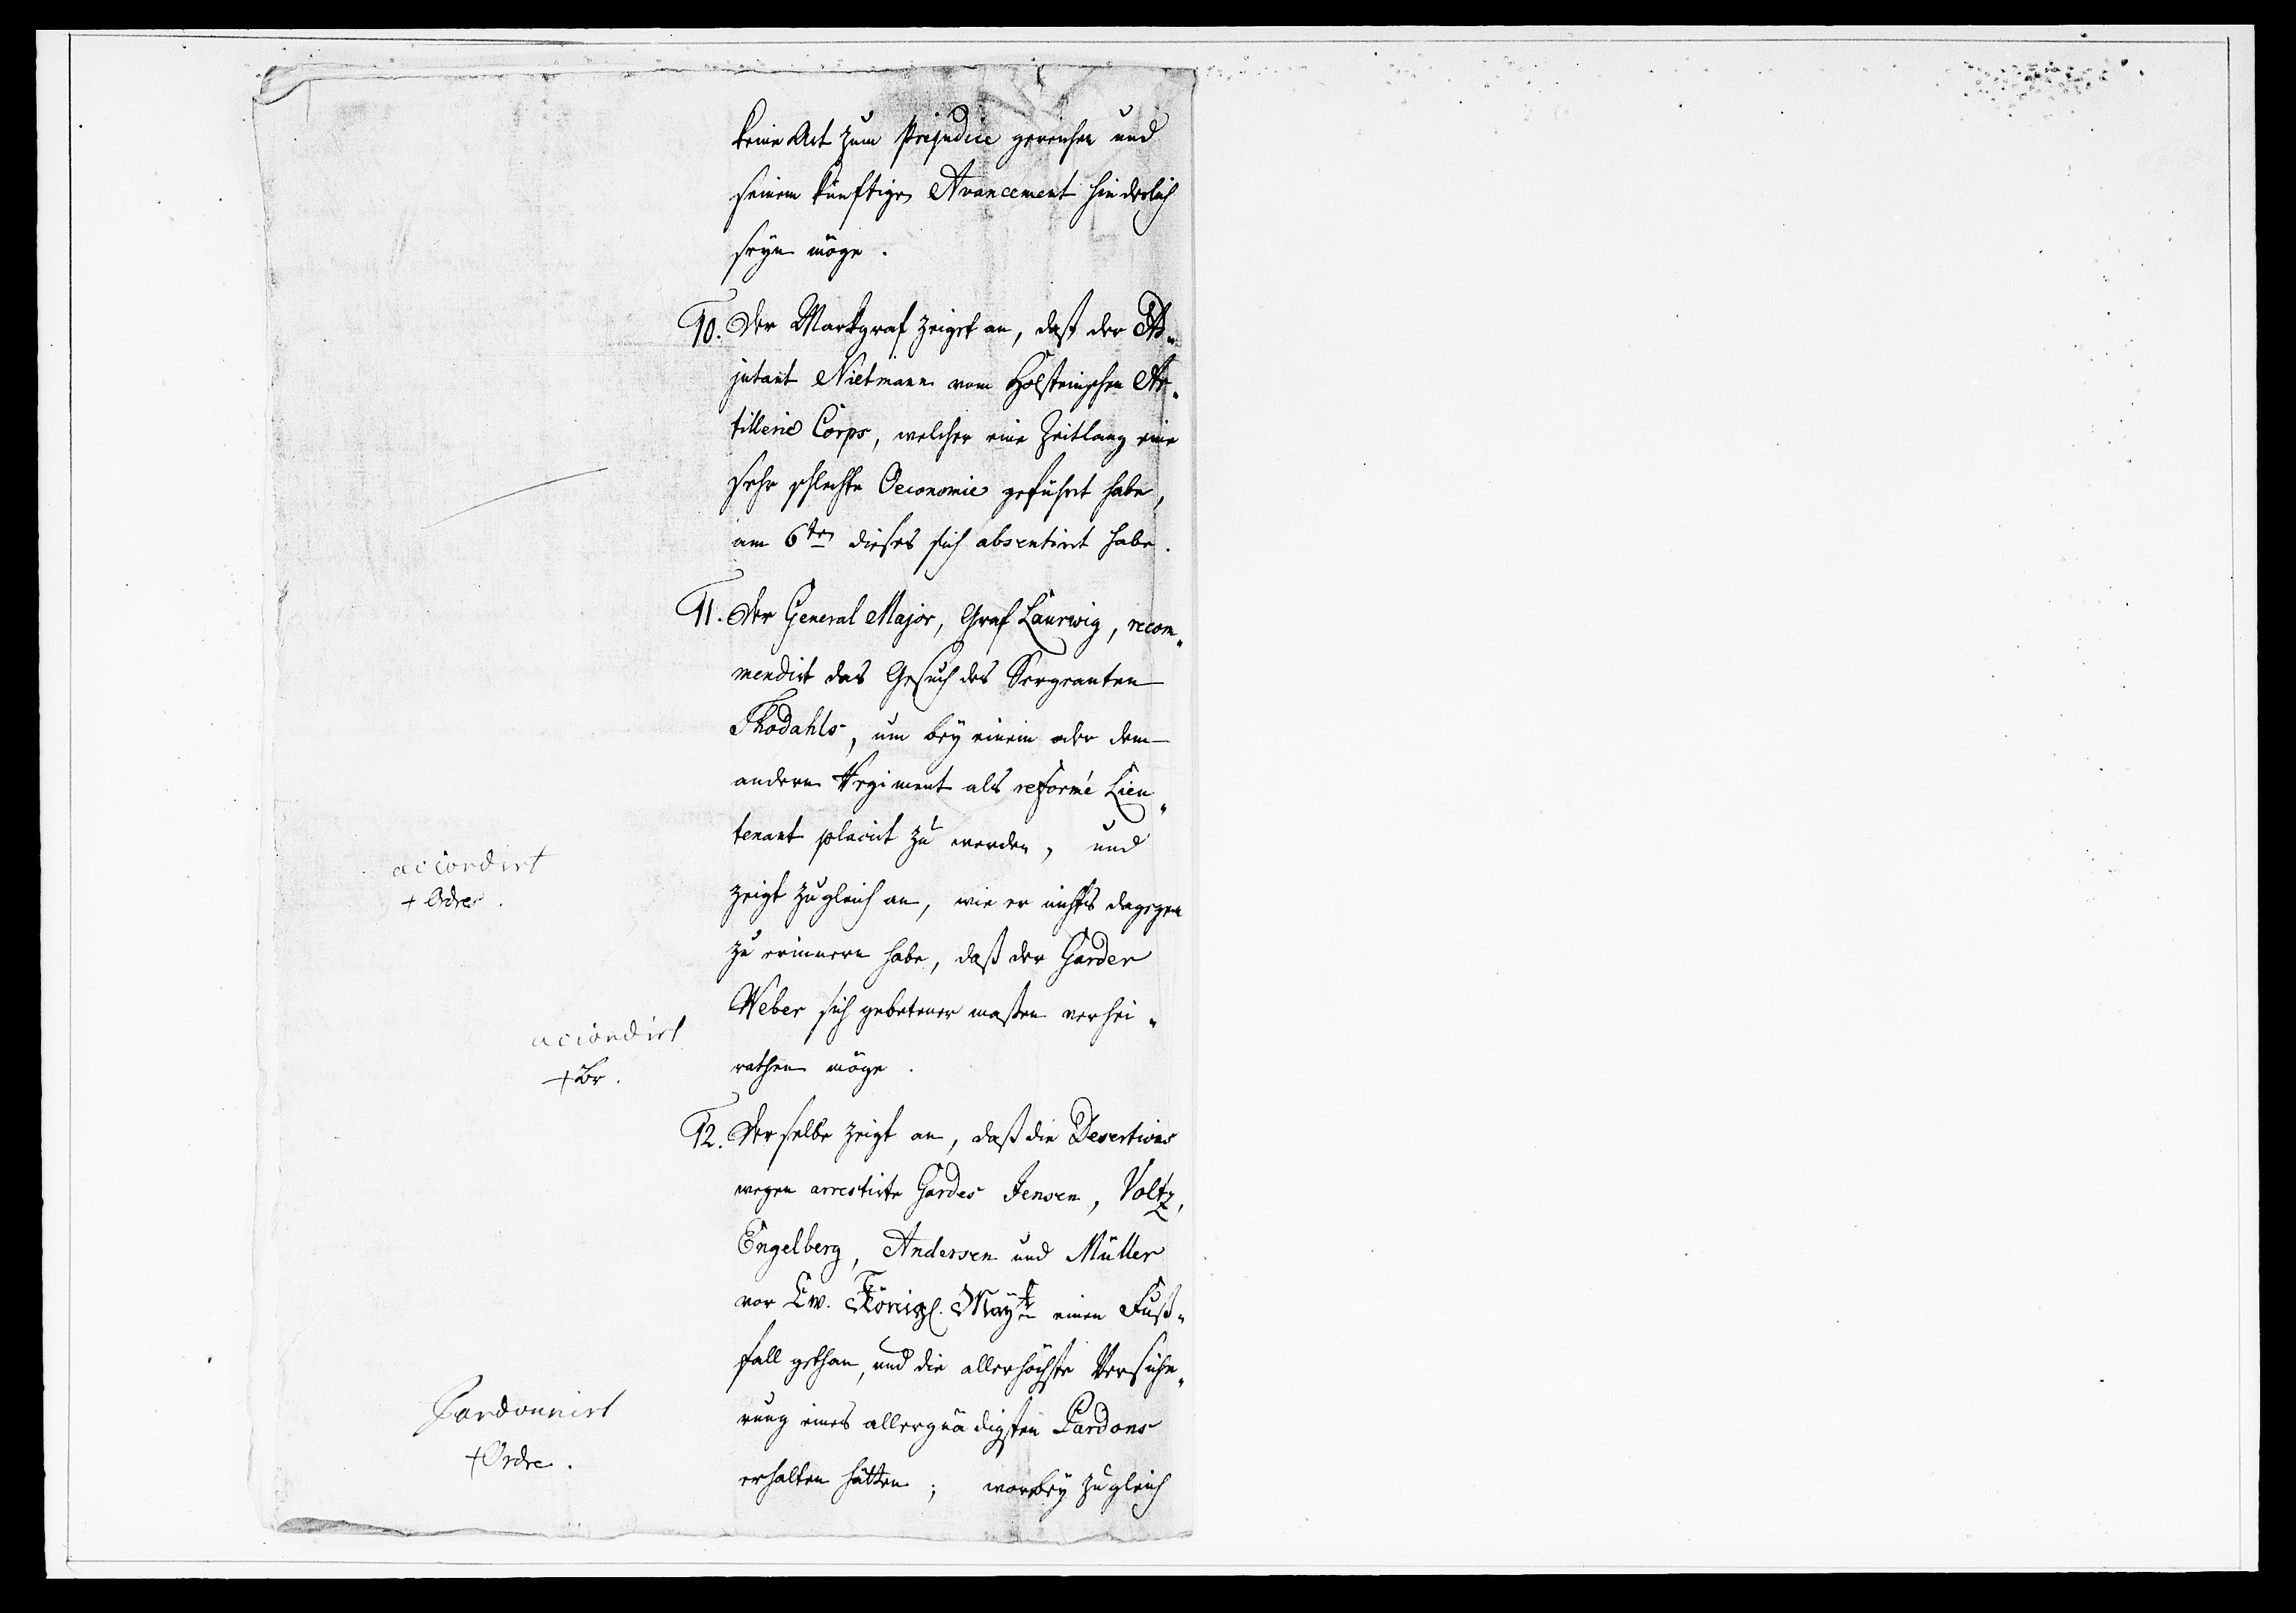 keine Art zum Prejudice gereichen und
seinem künftigen Avancement hinderlich
seyn möge.
10. Der Markgraf zeiget an, daß der Ad-
jutant Nietmann vom Holsteinschen Ar-
tillerie Corps, welcher eine Zeitlang eine
sehr schlechte Oeconomie geführt habe,
am 6ten dieses sich absentirt habe.
11. Der General Major, Graf Laurwig, recom-
mendirt das Gesuch des Sergeanten
Thodahls, um bey einem oder dem
andern Regiment als reformé Lieu-
tenant placirt zu werden, und
accordirt
+ Ordre.
zeigt zugleich an, wie er nichts dagegen
zu erinnern habe, daß der Garder
Weber sich gebetener maßen verhei-
accordirt
+ Br.
rathen möge.
12. Derselbe zeigt an, daß die Desertions
wegen arrestirte Gardes Jensen, Voltz,
Engelberg, Andersen und Müller
vor Ew. Königl. Mayt einen Fuß-
fall gethan, und die allerhöchste Versiche-
rung eines allergnädigsten Pardons
Pardonnirt
+ Ordre.
erhalten hätten; worbey zugleich